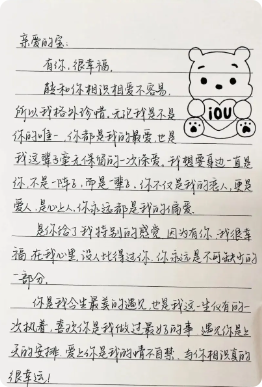 亲爱的宝:
有你,很幸福。
能和你相识相爱不容易,
所以我格外珍惜。无论我是不是
你的唯一,你都是我的最爱,也是
我这辈子毫无保留的一次深爱。我想要身边一直是
你,不是一阵子,而是一辈子,你不仅是我的恋人,更是
爱人,是心上人,你永远都是我的偏爱。
是你给了我特别的感觉,因为有你,我很幸
福,在我心里,没人比得过你,你永远是不可缺少的
一部分。
你是我今生最美的遇见,也是我这一生仅有的一
次执着,喜欢你是我做过最好的事,遇见你是上
天的安排,爱上你是我的情不自禁,与你相识真的
很幸运!
iOU